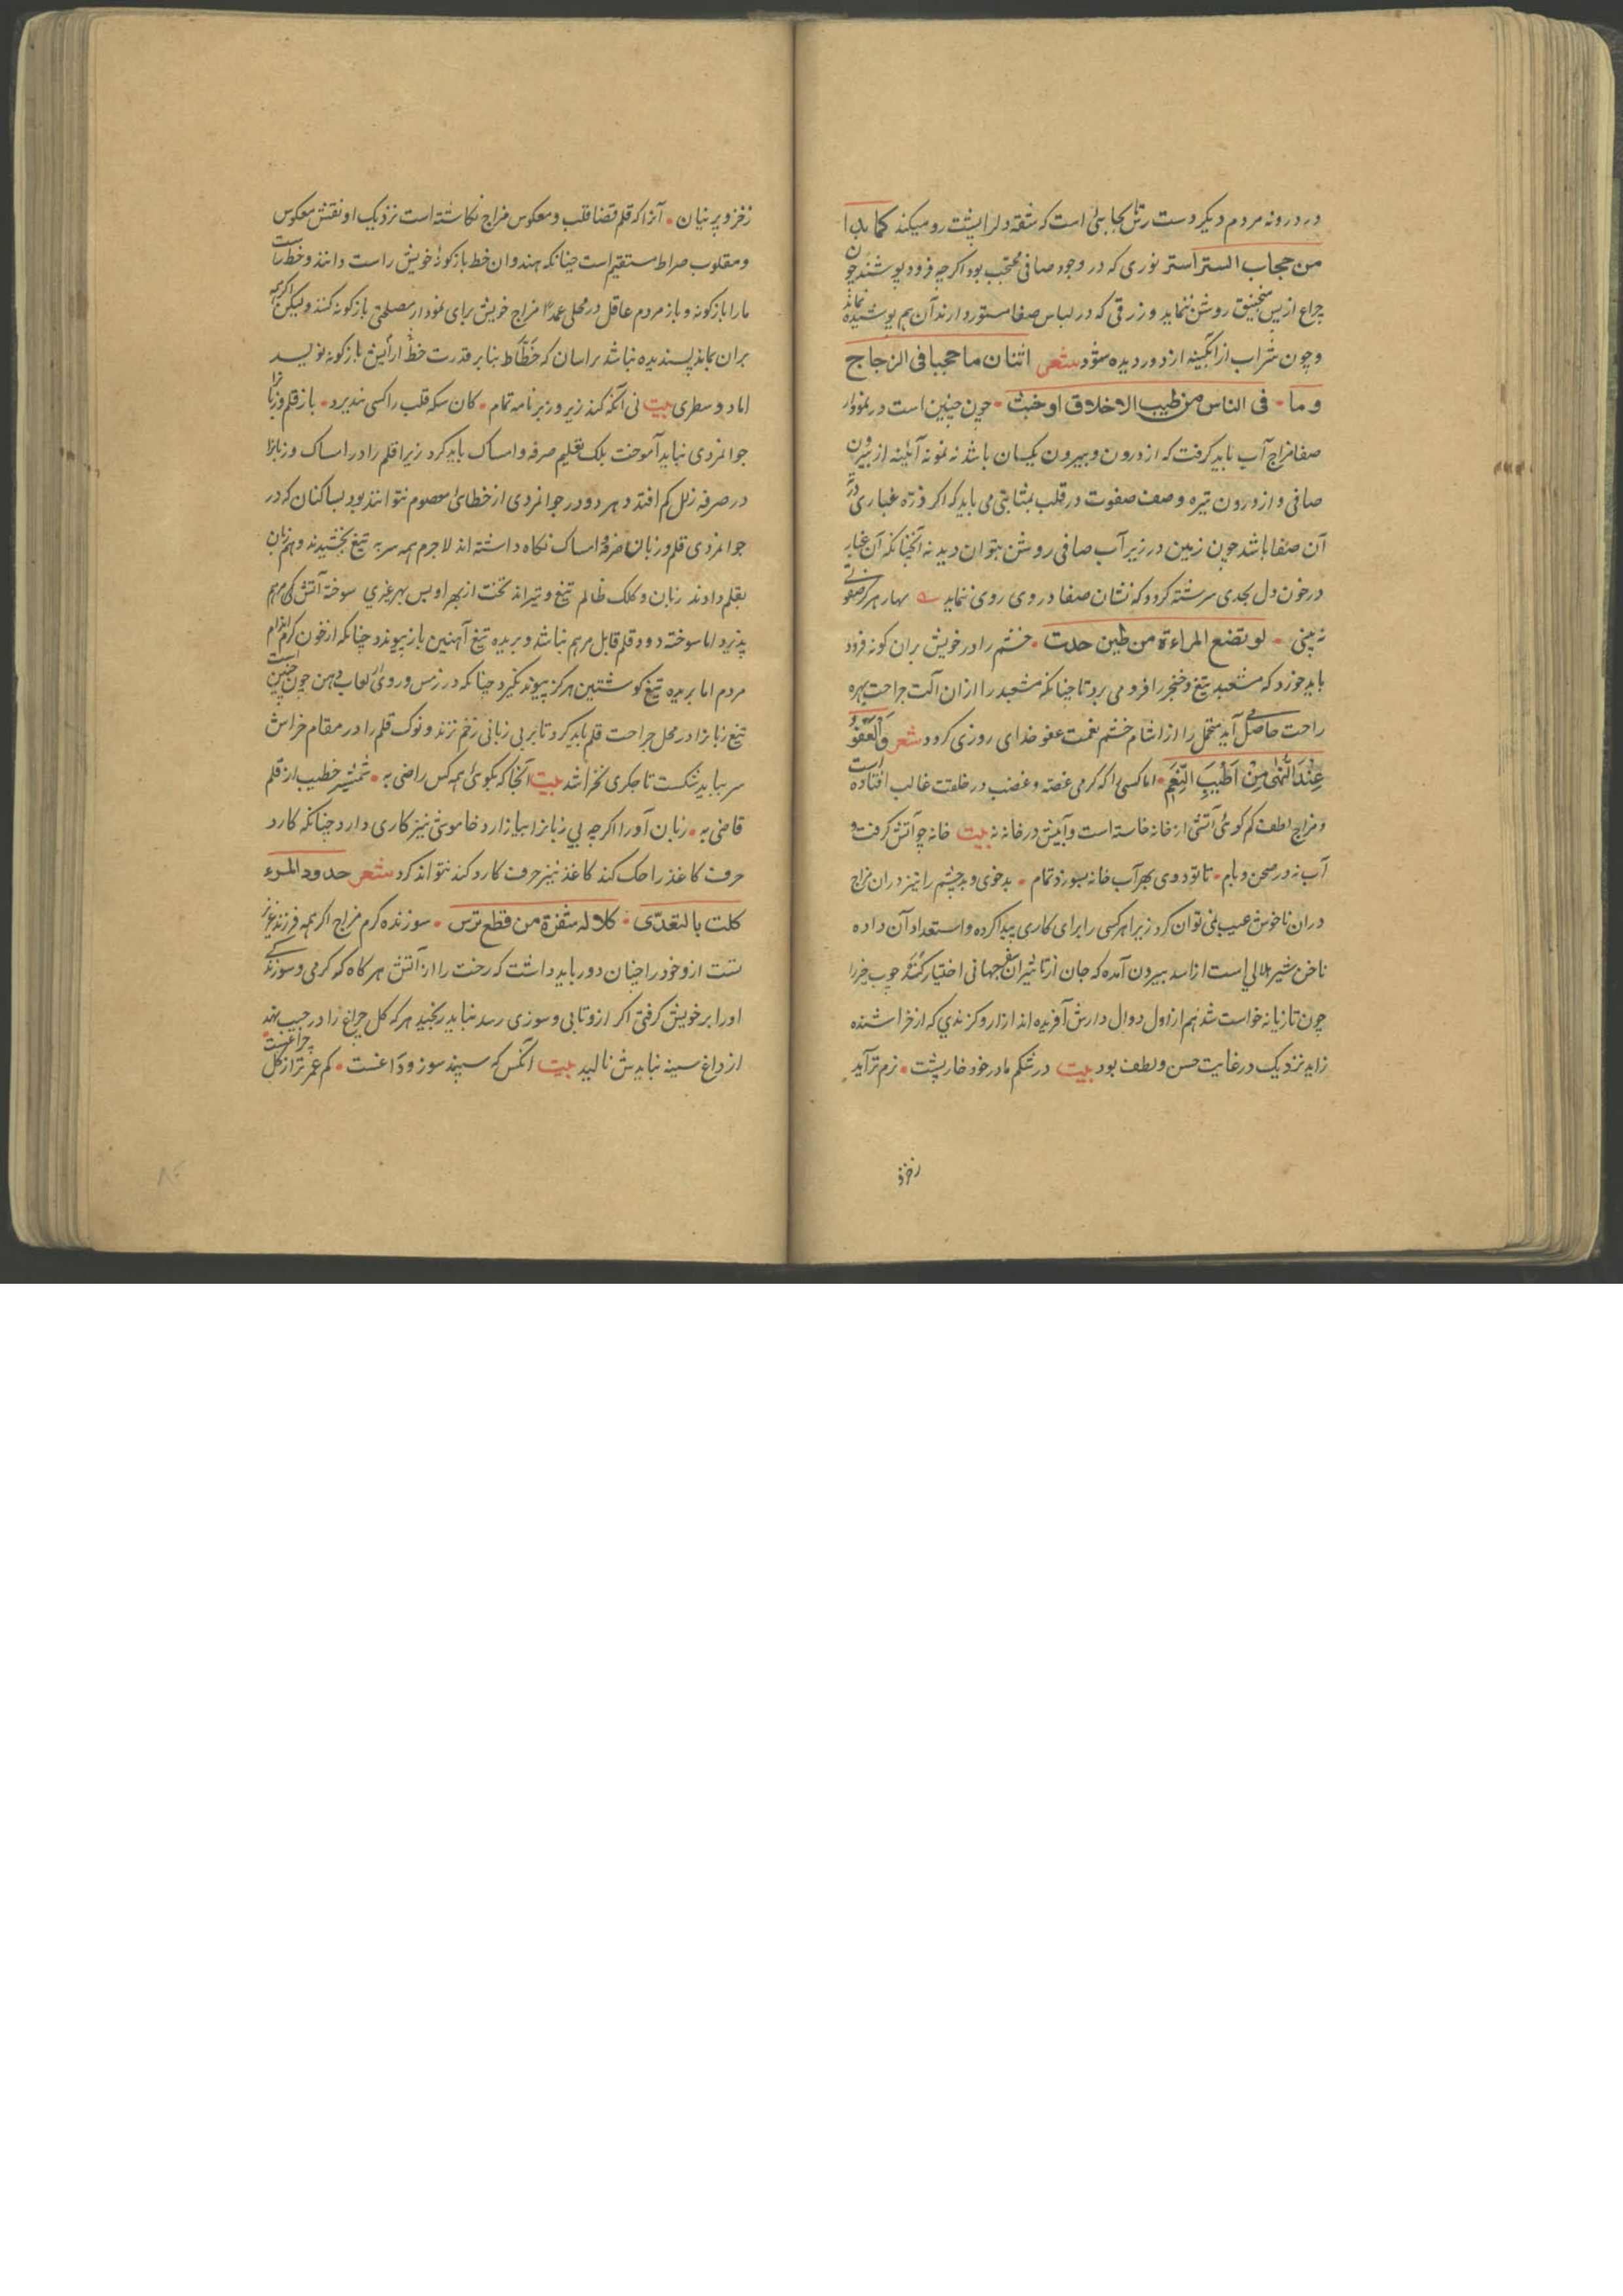 در درونه مردم دیکر دست رس حجابی است که شقه دلرا پشت رو میکند کما بدا
من حجاب الستر استر نوری که در وجود صافی محتجب بود اکرچه فرود پوشند چون
چراغ از پس منجنیق روشن نماید و زرقی که در لباس صفا مستور دارند آن هم پوشیده نماند
و چون شراب از آبکینه از دور دیده شود شعر اثنان ما حجبا فی الزجاج
وما • فی الناس من طیب الاخلاق او خبث • چون چنین است در نمودار
صفا مزاج آب باید کرفت که از درون و بیرون یکسان باشد نه نمونه آئینه از بیرون
صافی و از درون تیره وصف صفوت در قلب بمثابتی می باید که اکر ذره غباری در ته
آن صفا باشد چون زمین در زیر آب صافی روشن بتوان دید نه آنچنانکه آن غبار
در خون دل بحدی سرشته کردد که نشان صفا در وی روی ننماید بهار هرکز صفوتی
نه بینی • لو تضع المراءة من طین حدت • خشم را در خویش بران کونه فرود
باید خورد که مشعبد تیغ و خنجر را فرو می برد تا چنانکه مشعبد را ازان آلت جراحت بهره
راحت حاصل می آید متحمل را از اشام خشم نعمت عفو خدای روزی کردد شعر والعفو
عند النهی من اطیب النعم • اما کسی را که کرمی غصه و غضب در خلقت غالب افتاده است
و مزاج لطف کم کوئی آتش از خانه خاسته است و آبیش در خانه نه بیت خانه چو آتش کرفت و
آب نه در صحن و بام • تا تو دوی بهر آب خانه بسوزد تمام • بدخوی و بدچشم را نیز دران مزاج
دران ناخوش عیب نمی توان کرد زیرا هر کسی را برای کاری پیدا کرده و استعداد آن داده
ناخن شیر هلالی است از اسد بیرون آمده که جان از تاثیر آن جهانی اختیار کند چوب خزرا
چون تازیانه خواست شد هم از اول دوال دارش آفریده اند ازار و کزندی که از خراشنده
زاید نزدیک در غایت حسن و لطف بود بیت در شکم مادر خود خارپشت • نرم تر آید
زخز و پرنیان • آنرا که قلم قضا قلب و معکوس مزاج نکاشته است نزدیک او نقش معکوس
و مقلوب صراط مستقیم است چنانکه هندوان خط بازکونهٔ خویش راست دانند و خط راست
مارا بازکونه و باز مردم عاقل در محلی عمداً مزاج خویش برای نمودار مصلحتی بازکونه کند ولیکن اکرچه
بران بماند پسندیده نباشد براسان که خطّاط بنابر قدرت خط آرایش بازکونه نویسد
اما دو سطری بیت نی آنکه کند زیر و زبر نامه تمام • کان سکه قلب را کسی نپذیرد • باز قلم و زبانرا
جوانمردی نباید آموخت بلک تعلیم صرفه و امساک باید کرد زیرا قلم را در امساک و زبانرا
در صرفه زلل کم افتد و هر دو در جوانمردی از خطای معصوم نتوانند بود بسا کسان که در
جوانمردی قلم و زبان صرفه و امساک نکاه داشته اند لاجرم همه سر به تیغ بخشیدند و هم زبان
بقلم دادند زبان و کلک ظالم تیغ و تیراند نخست از بهر او بس بهر غیری سوخته آتش کی مرهم
پذیرد اما سوخته دود قلم قابل مرهم نباشد و بریده تیغ آهنین باز پیوندد چنانکه از خون کرم اندام
مردم اما بریده تیغ کوشتین هرکز پیوند نکیرد چنانکه در زمس و روی از لعاب دهن چون چنین است
تیغ زبانرا در محل جراحت قلم باید کرد تا بر بی زبانی زخم نزند و نوک قلم را در مقام خراش
سر بباید شکست تا جکری نخراشد بیت آنجا که بکوئی همه کس راضی به • شمشیر خطیب از قلم
قاضی به • زبان آورا اکرچه بی زبانرا بیازارد خاموشی نیز کاری دارد چنانکه کارد
حرف کاغذ را حک کند کاغذ نیز حرف کارد کند نتواند کرد شعر حدود المرء
کلت بالتعدّی • کلاله شفرة من قطع ترس • سوزنده کرم مزاج اکر همه فرزند عزیز
تست ازو خود را چنان دور باید داشت که رخت را از آتش هرکاه که کرمی و سوزندکی
اورا بر خویش کرفتی اکر ازو تابی و سوزی رسد نباید رنجید هرکه کل چراغ را در جیب نهد
از داغ سینه نبایدش نالید بیت آنکس که سپند سوز و داغست • کم عمرتر از کل چراغست
زخز
۸۴